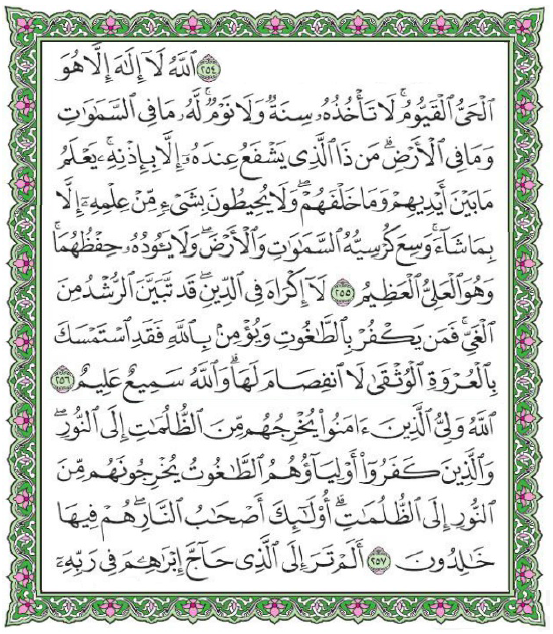 ﴿٢٥٤﴾ ٱللَّهُ لَآ إِلَٰهَ إِلَّا هُوَ
ٱلْحَىُّ ٱلْقَيُّومُ ۚ لَا تَأْخُذُهُۥ سِنَةٌ وَلَا نَوْمٌ ۚ لَّهُۥ مَا فِى ٱلسَّمَٰوَٰتِ
وَمَا فِى ٱلْأَرْضِ ۗ مَن ذَا ٱلَّذِى يَشْفَعُ عِندَهُۥٓ إِلَّا بِإِذْنِهِۦ ۚ يَعْلَمُ
مَا بَيْنَ أَيْدِيهِمْ وَمَا خَلْفَهُمْ ۖ وَلَا يُحِيطُونَ بِشَىْءٍ مِّنْ عِلْمِهِۦٓ إِلَّا
بِمَا شَآءَ ۚ وَسِعَ كُرْسِيُّهُ ٱلسَّمَٰوَٰتِ وَٱلْأَرْضَ ۖ وَلَا يَـُٔودُهُۥ حِفْظُهُمَا ۚ
وَهُوَ ٱلْعَلِىُّ ٱلْعَظِيمُ ﴿٢٥٥﴾ لَآ إِكْرَاهَ فِى ٱلدِّينِ ۖ قَد تَّبَيَّنَ ٱلرُّشْدُ مِنَ
ٱلْغَىِّ ۚ فَمَن يَكْفُرْ بِٱلطَّٰغُوتِ وَيُؤْمِنۢ بِٱللَّهِ فَقَدِ ٱسْتَمْسَكَ
بِٱلْعُرْوَةِ ٱلْوُثْقَىٰ لَا ٱنفِصَامَ لَهَا ۗ وَٱللَّهُ سَمِيعٌ عَلِيمٌ ﴿٢٥٦﴾
ٱللَّهُ وَلِىُّ ٱلَّذِينَ ءَامَنُوا۟ يُخْرِجُهُم مِّنَ ٱلظُّلُمَٰتِ إِلَى ٱلنُّورِ ۖ
وَٱلَّذِينَ كَفَرُوٓا۟ أَوْلِيَآؤُهُمُ ٱلطَّٰغُوتُ يُخْرِجُونَهُم مِّنَ
ٱلنُّورِ إِلَى ٱلظُّلُمَٰتِ ۗ أُو۟لَٰٓئِكَ أَصْحَٰبُ ٱلنَّارِ ۖ هُمْ فِيهَا
خَٰلِدُونَ ﴿٢٥٧﴾ أَلَمْ تَرَ إِلَى ٱلَّذِى حَآجَّ إِبْرَٰهِـۧمَ فِى رَبِّهِۦٓ